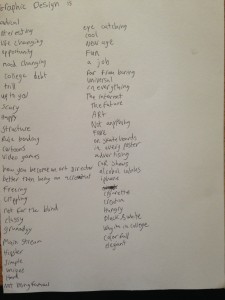 Graphic Design is
radical
interesting
life changing
opportunity
mind changing
college debt
troll
up to you!
scary
happy
structure
Rule bending
cartoons
video games
how you become an art director
better then being an
freeing
crippling
not for the blind
classy
grunedgy
Main stream
Hipster
Simple
unique
Hard
not being
eye catching
cool
new age
Fun
a job
far from boring
universal
on everything
The internet
The future
Art
Not anything
Free
on skateboards
in every poster
advertising
car shows
alcohol labels
iphone
cigarette
liquor
hungry
Black & white
why im in college
Color full
elegant